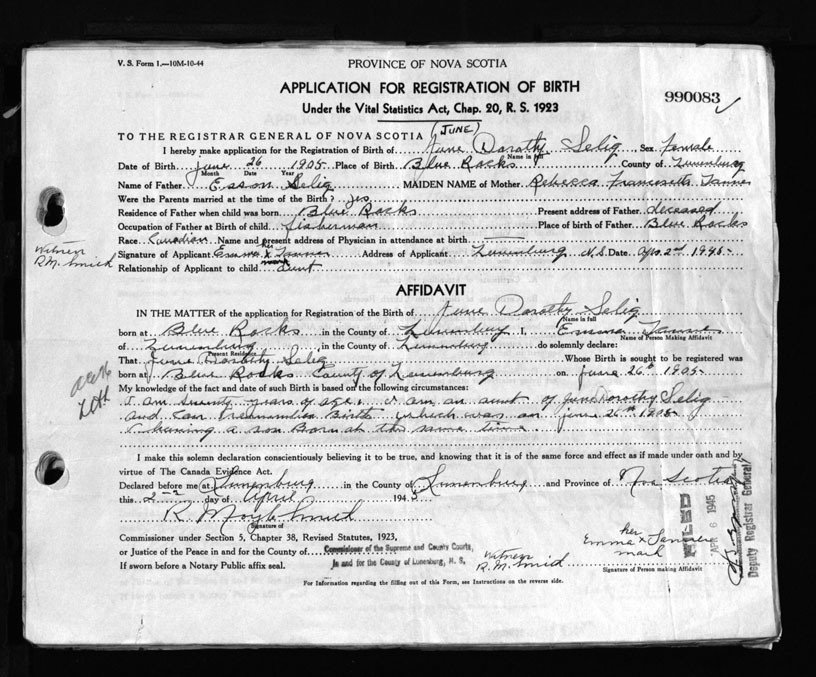 V. S. Form 1.—10M-10-44
PROVINCE OF NOVA SCOTIA
APPLICATION FOR REGISTRATION OF BIRTH
990083
Under the Vital Statistics Act, Chap. 20, R. S. 1923
(JUNE)
TO THE REGISTRAR GENERAL OF NOVA SCOTIA
I hereby make application for the Registration of Birth of June Dorothy Selig Sex female
Name in full
Date of Birth June 26 1905 Place of Birth Blue Rocks County of Lunenburg
Month Date Year
Name of Father Esson Selig MAIDEN NAME of Mother Rebecca Tanner
Were the Parents married at the time of the Birth? yes
Residence of Father when child was born Blue Rocks Present address of Father deceased
Occupation of Father at Birth of child fisherman Place of birth of Father Blue Rocks
Race Canadian Name and present address of Physician in attendance at birth
Witness
R.M. Smith
Signature of Applicant Emma her x mark Tanner Address of Applicant Lunenburg N.S. Date Apr 2nd 1945
Relationship of Applicant to child Aunt
AFFIDAVIT
IN THE MATTER of the application for Registration of the Birth of June Dorothy Selig
Name in full
born at Blue Rocks in the County of Lunenburg I, Emma Tanner
Name of Person Making Affidavit
of Lunenburg in the County of Lunenburg do solemnly declare:
Present Residence
That June Dorothy Selig Whose Birth is sought to be registered was
born at Blue Rocks County of Lunenburg on June 26th 1905
My knowledge of the fact and date of such Birth is based on the following circumstances:
I am seventy years of age, I am an aunt of June Dorothy Selig
and can remember Birth which was on June 26th 1905
I having a son Born at the same time.
I make this solemn declaration conscientiously believing it to be true, and knowing that it is of the same force and effect as if made under oath and by
virtue of The Canada Evidence Act.
Declared before me at Lunenburg in the County of Lunenburg and Province of Nova Scotia
this 2nd day of April 1945
Signature of
Commissioner under Section 5, Chapter 38, Revised Statutes, 1923,
or Justice of the Peace in and for the County of Commissioner of the Supreme and County Courts,
In and for the County of Lunenburg, N. S.
If sworn before a Notary Public affix seal.
Witness
R.M. Smith
Emma her x mark Tanner
Signature of Person making Affidavit
FILED
APR 6 1945
Deputy Registrar General
For Information regarding the filling out of this Form, see Instructions on the reverse side.